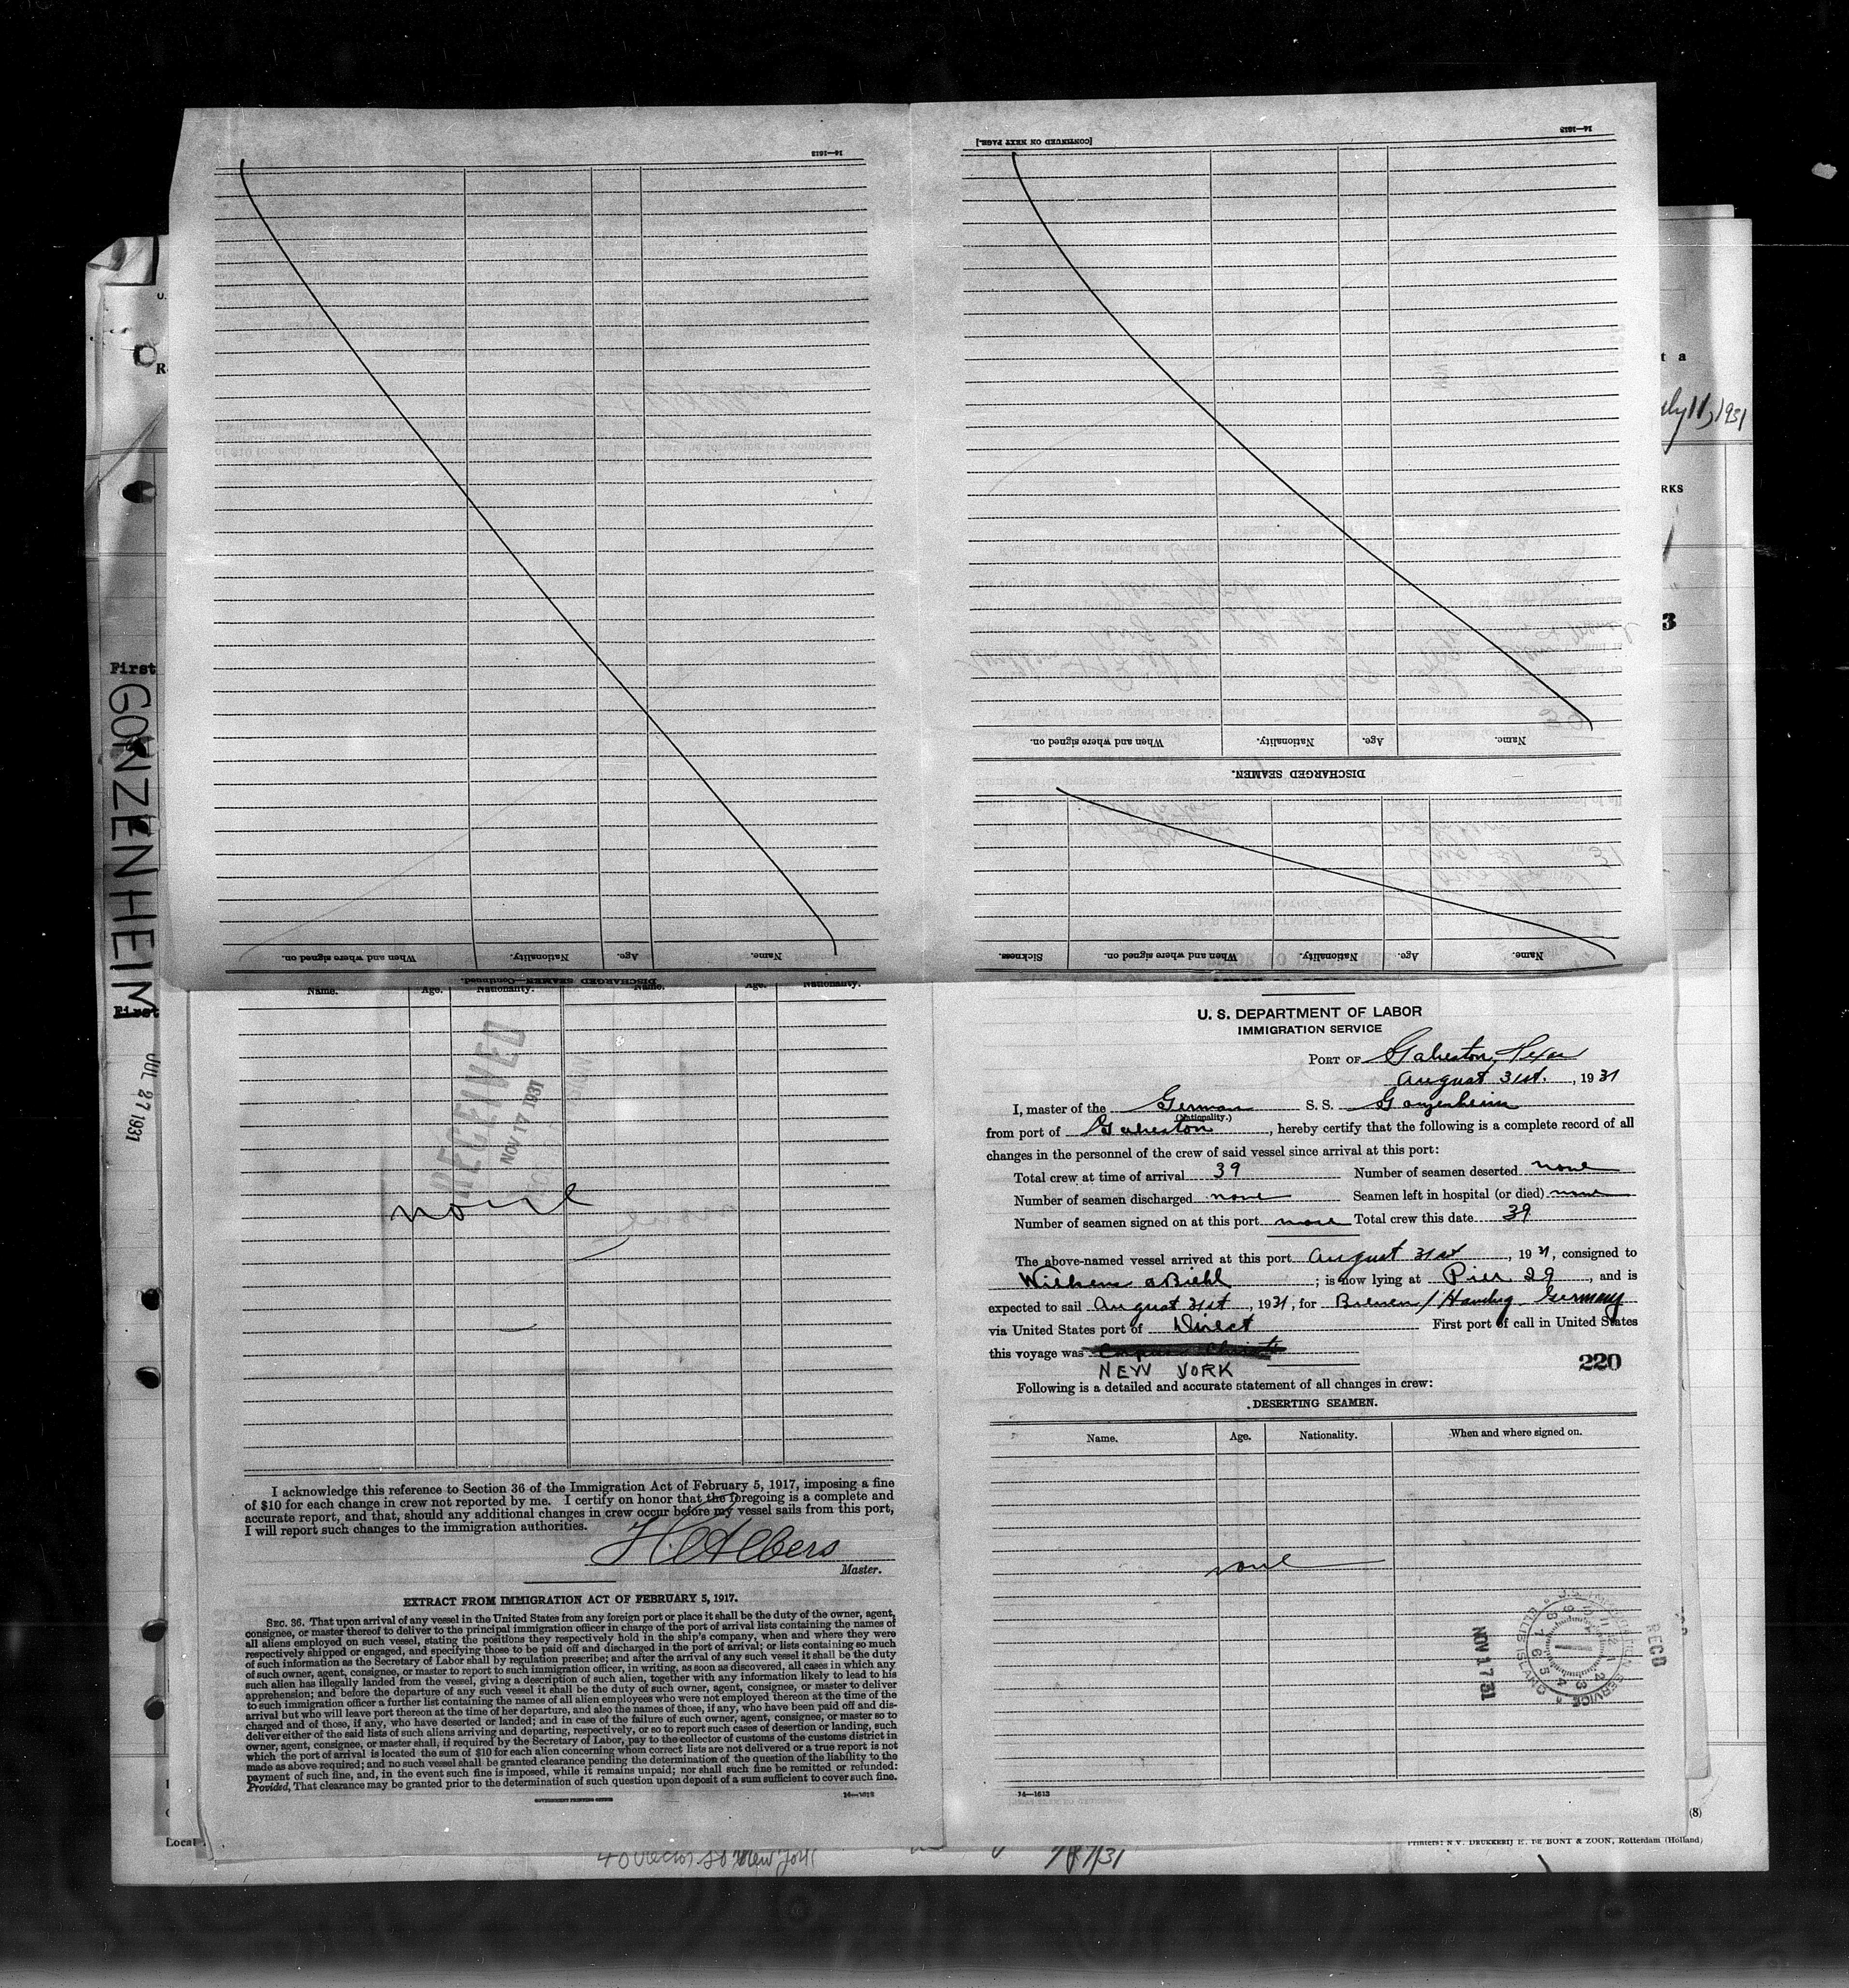 14—1613
[CONTINUED ON NEXT PAGE.]
14—1613
When and where signed on.
Nationality.
Age.
Name.
DISCHARGED SEAMEN.
When and where signed on.
Nationality.
Age.
Name.
Sickness.
When and where signed on.
Nationality.
Age.
Name.
DISCHARGED SEAMEN—Continued.
First
GONZENHEIM
First
JUL 27 1931
U.
R
t a
July 11, 1931
RKS
3
Name. Age. Nationality. Name. Age. Nationality.
RECEIVED
NOV 17 1931
none
I acknowledge this reference to Section 36 of the Immigration Act of February 5, 1917, imposing a fine
of $10 for each change in crew not reported by me. I certify on honor that the foregoing is a complete and
accurate report, and that, should any additional changes in crew occur before my vessel sails from this port,
I will report such changes to the immigration authorities.
H Albers
Master.
EXTRACT FROM IMMIGRATION ACT OF FEBRUARY 5, 1917.
SEC. 36. That upon arrival of any vessel in the United States from any foreign port or place it shall be the duty of the owner, agent,
consignee, or master thereof to deliver to the principal immigration officer in charge of the port of arrival lists containing the names of
all aliens employed on such vessel, stating the positions they respectively hold in the ship's company, when and where they were
respectively shipped or engaged, and specifying those to be paid off and discharged in the port of arrival; or lists containing so much
of such information as the Secretary of Labor shall by regulation prescribe; and after the arrival of any such vessel it shall be the duty
of such owner, agent, consignee, or master to report to such immigration officer, in writing, as soon as discovered, all cases in which any
such alien has illegally landed from the vessel, giving a description of such alien, together with any information likely to lead to his
apprehension; and before the departure of any such vessel it shall be the duty of such owner, agent, consignee, or master to deliver
to such immigration officer a further list containing the names of all alien employees who were not employed thereon at the time of the
arrival but who will leave port thereon at the time of her departure, and also the names of those, if any, who have been paid off and dis-
charged and of those, if any, who have deserted or landed; and in case of the failure of such owner, agent, consignee, or master so to
deliver either of the said lists of such aliens arriving and departing, respectively, or so to report such cases of desertion or landing, such
owner, agent, consignee, or master shall, if required by the Secretary of Labor, pay to the collector of customs of the customs district in
which the port of arrival is located the sum of $10 for each alien concerning whom correct lists are not delivered or a true report is not
made as above required; and no such vessel shall be granted clearance pending the determination of the question of the liability to the
payment of such fine, and, in the event such fine is imposed, while it remains unpaid; nor shall such fine be remitted or refunded:
Provided, That clearance may be granted prior to the determination of such question upon deposit of a sum sufficient to cover such fine.
GOVERNMENT PRINTING OFFICE
14—1613
U. S. DEPARTMENT OF LABOR
IMMIGRATION SERVICE
PORT OF Galveston, Texas
August 31st. , 1931
I, master of the German S. S. Gonzenheim
(Nationality.)
from port of Galveston , hereby certify that the following is a complete record of all
changes in the personnel of the crew of said vessel since arrival at this port:
Total crew at time of arrival 39 Number of seamen deserted none
Number of seamen discharged none Seamen left in hospital (or died) none
Number of seamen signed on at this port none Total crew this date 39
The above-named vessel arrived at this port August 31st , 1931, consigned to
Wilkens & Biehl ; is now lying at Pier 29 , and is
expected to sail August 31st , 1931, for Bremen / Hamburg Germany
via United States port of Direct First port of call in United States
this voyage was Corpus Christi
NEW YORK
220
Following is a detailed and accurate statement of all changes in crew:
DESERTING SEAMEN.
Name. Age. Nationality. When and where signed on.
none
NOV 17 31
U.S. IMMIGRATION SERVICE
ELLIS ISLAND
REC'D
14—1613
(8)
Local
Printers: N.V. DRUKKERIJ E. DE BONT & ZOON, Rotterdam (Holland)
40 Rector St New York